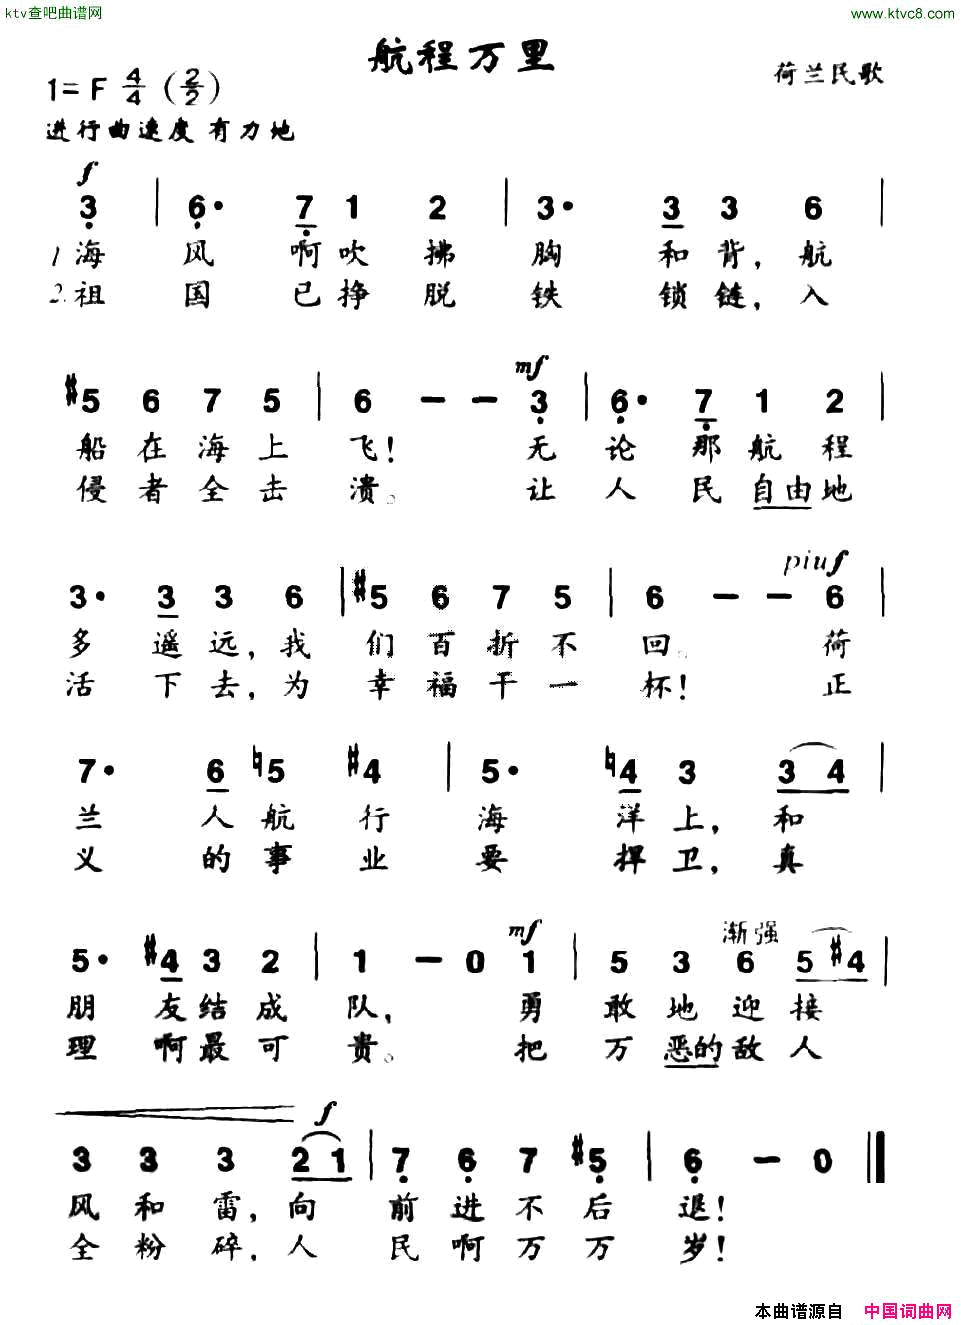 ktv查吧曲谱网
www.ktvc8.com
航程万里
荷兰民歌
1=F 4/4 (2/2)
进行曲速度 有力地
f
3 | 6· 7 1 2 | 3· 3 3 6 |
1 海 风 啊 吹 拂 胸 和 背, 航
2. 祖 国 已 挣 脱 铁 锁 链, 入
mf
#5 6 7 5 | 6 - - 3 | 6· 7 1 2 |
船 在 海 上 飞! 无 论 那 航 程
侵 者 全 击 溃。 让 人 民 自由 地
piuf
3· 3 3 6 | #5 6 7 5 | 6 - - 6 |
多 遥 远, 我 们 百 折 不 回。 荷
活 下 去, 为 幸 福 干 一 杯! 正
7· 6 ♮5 #4 | 5· ♮4 3 3 4 |
兰 人 航 行 海 洋 上, 和
义 的 事 业 要 捍 卫, 真
mf 渐强
5· #4 3 2 | 1 - 0 1 | 5 3 6 5 #4 |
朋 友 结 成 队, 勇 敢 地 迎 接
理 啊 最 可 贵。 把 万 恶的 敌 人
f
3 3 3 2 1 | 7 6 7 #5 | 6 - 0 ||
风 和 雷, 向 前 进 不 后 退!
全 粉 碎, 人 民 啊 万 万 岁!
本曲谱源自 中国词曲网